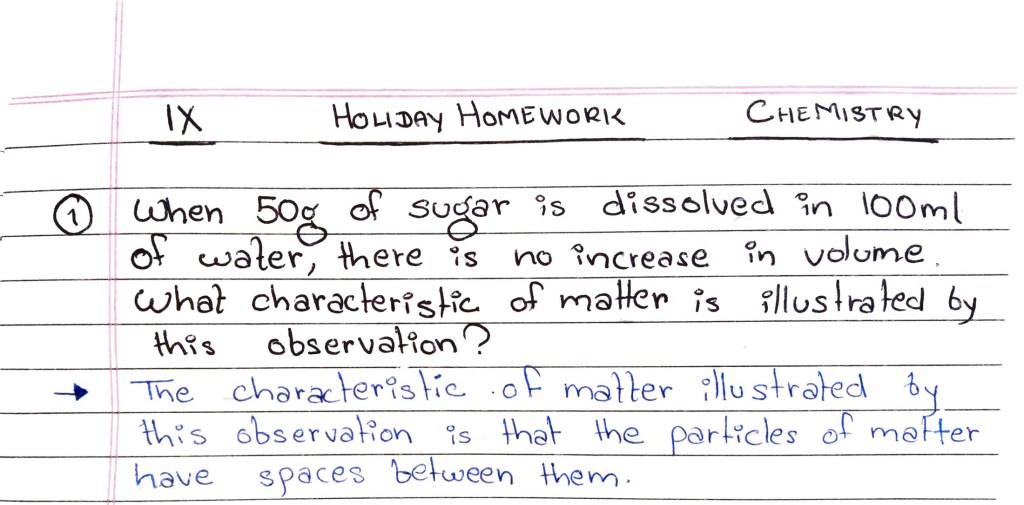 IX HOLIDAY HOMEWORK CHEMISTRY
1 When 50g of sugar is dissolved in 100ml
of water, there is no increase in volume.
What characteristic of matter is illustrated by
this observation?
→ The characteristic of matter illustrated by
this observation is that the particles of matter
have spaces between them.